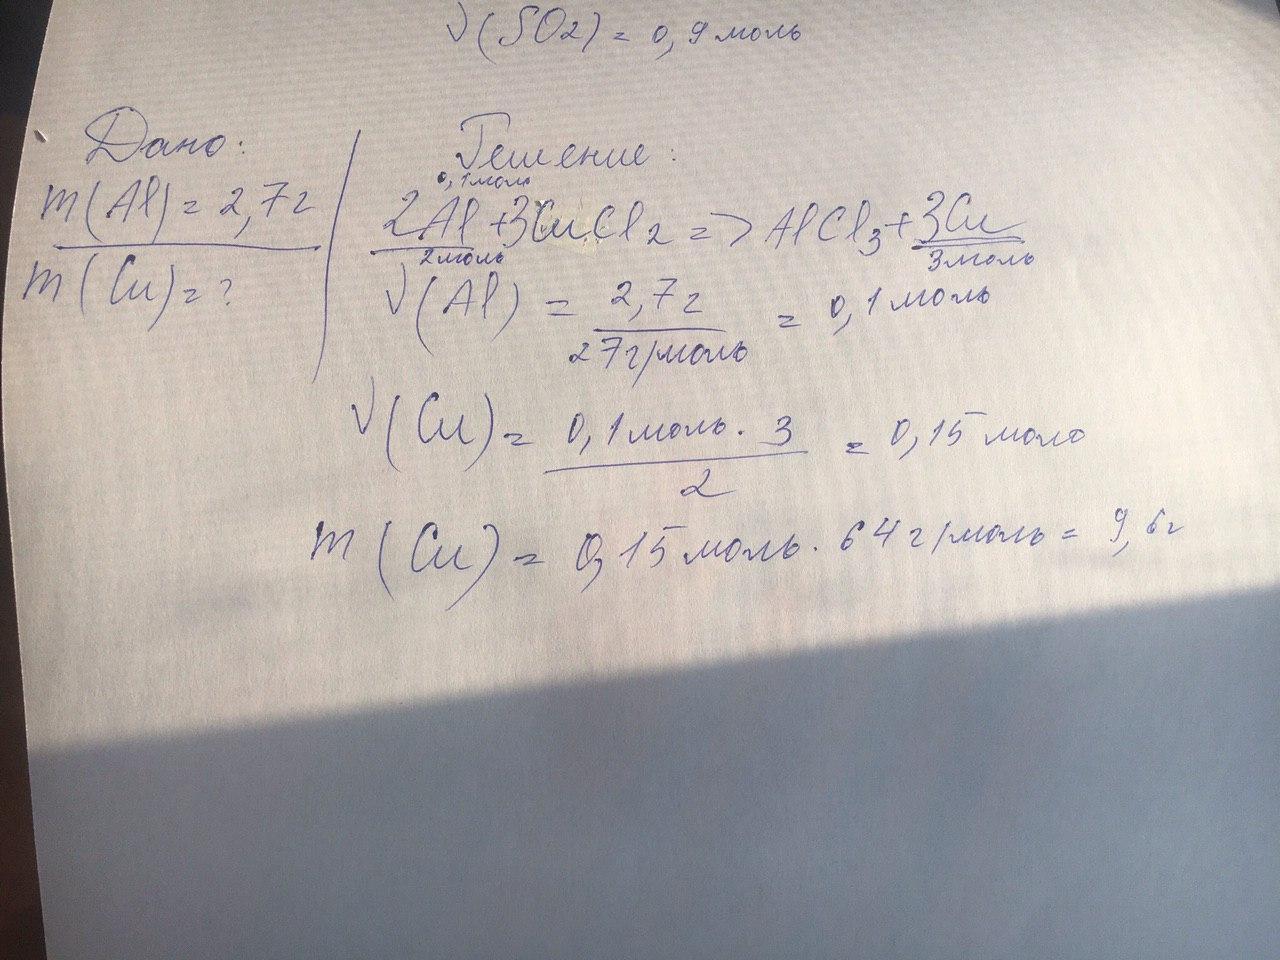 ν(SO2) = 0,9 моль
Дано:
m(Al) = 2,7 г
m(Cu) = ?
Решение:
0,1 моль
2Al + 3CuCl2 => AlCl3 + 3Cu
2 моль 3 моль
ν(Al) = 2,7 г / 27 г/моль = 0,1 моль
ν(Cu) = 0,1 моль · 3 / 2 = 0,15 моль
m(Cu) = 0,15 моль · 64 г/моль = 9,6 г